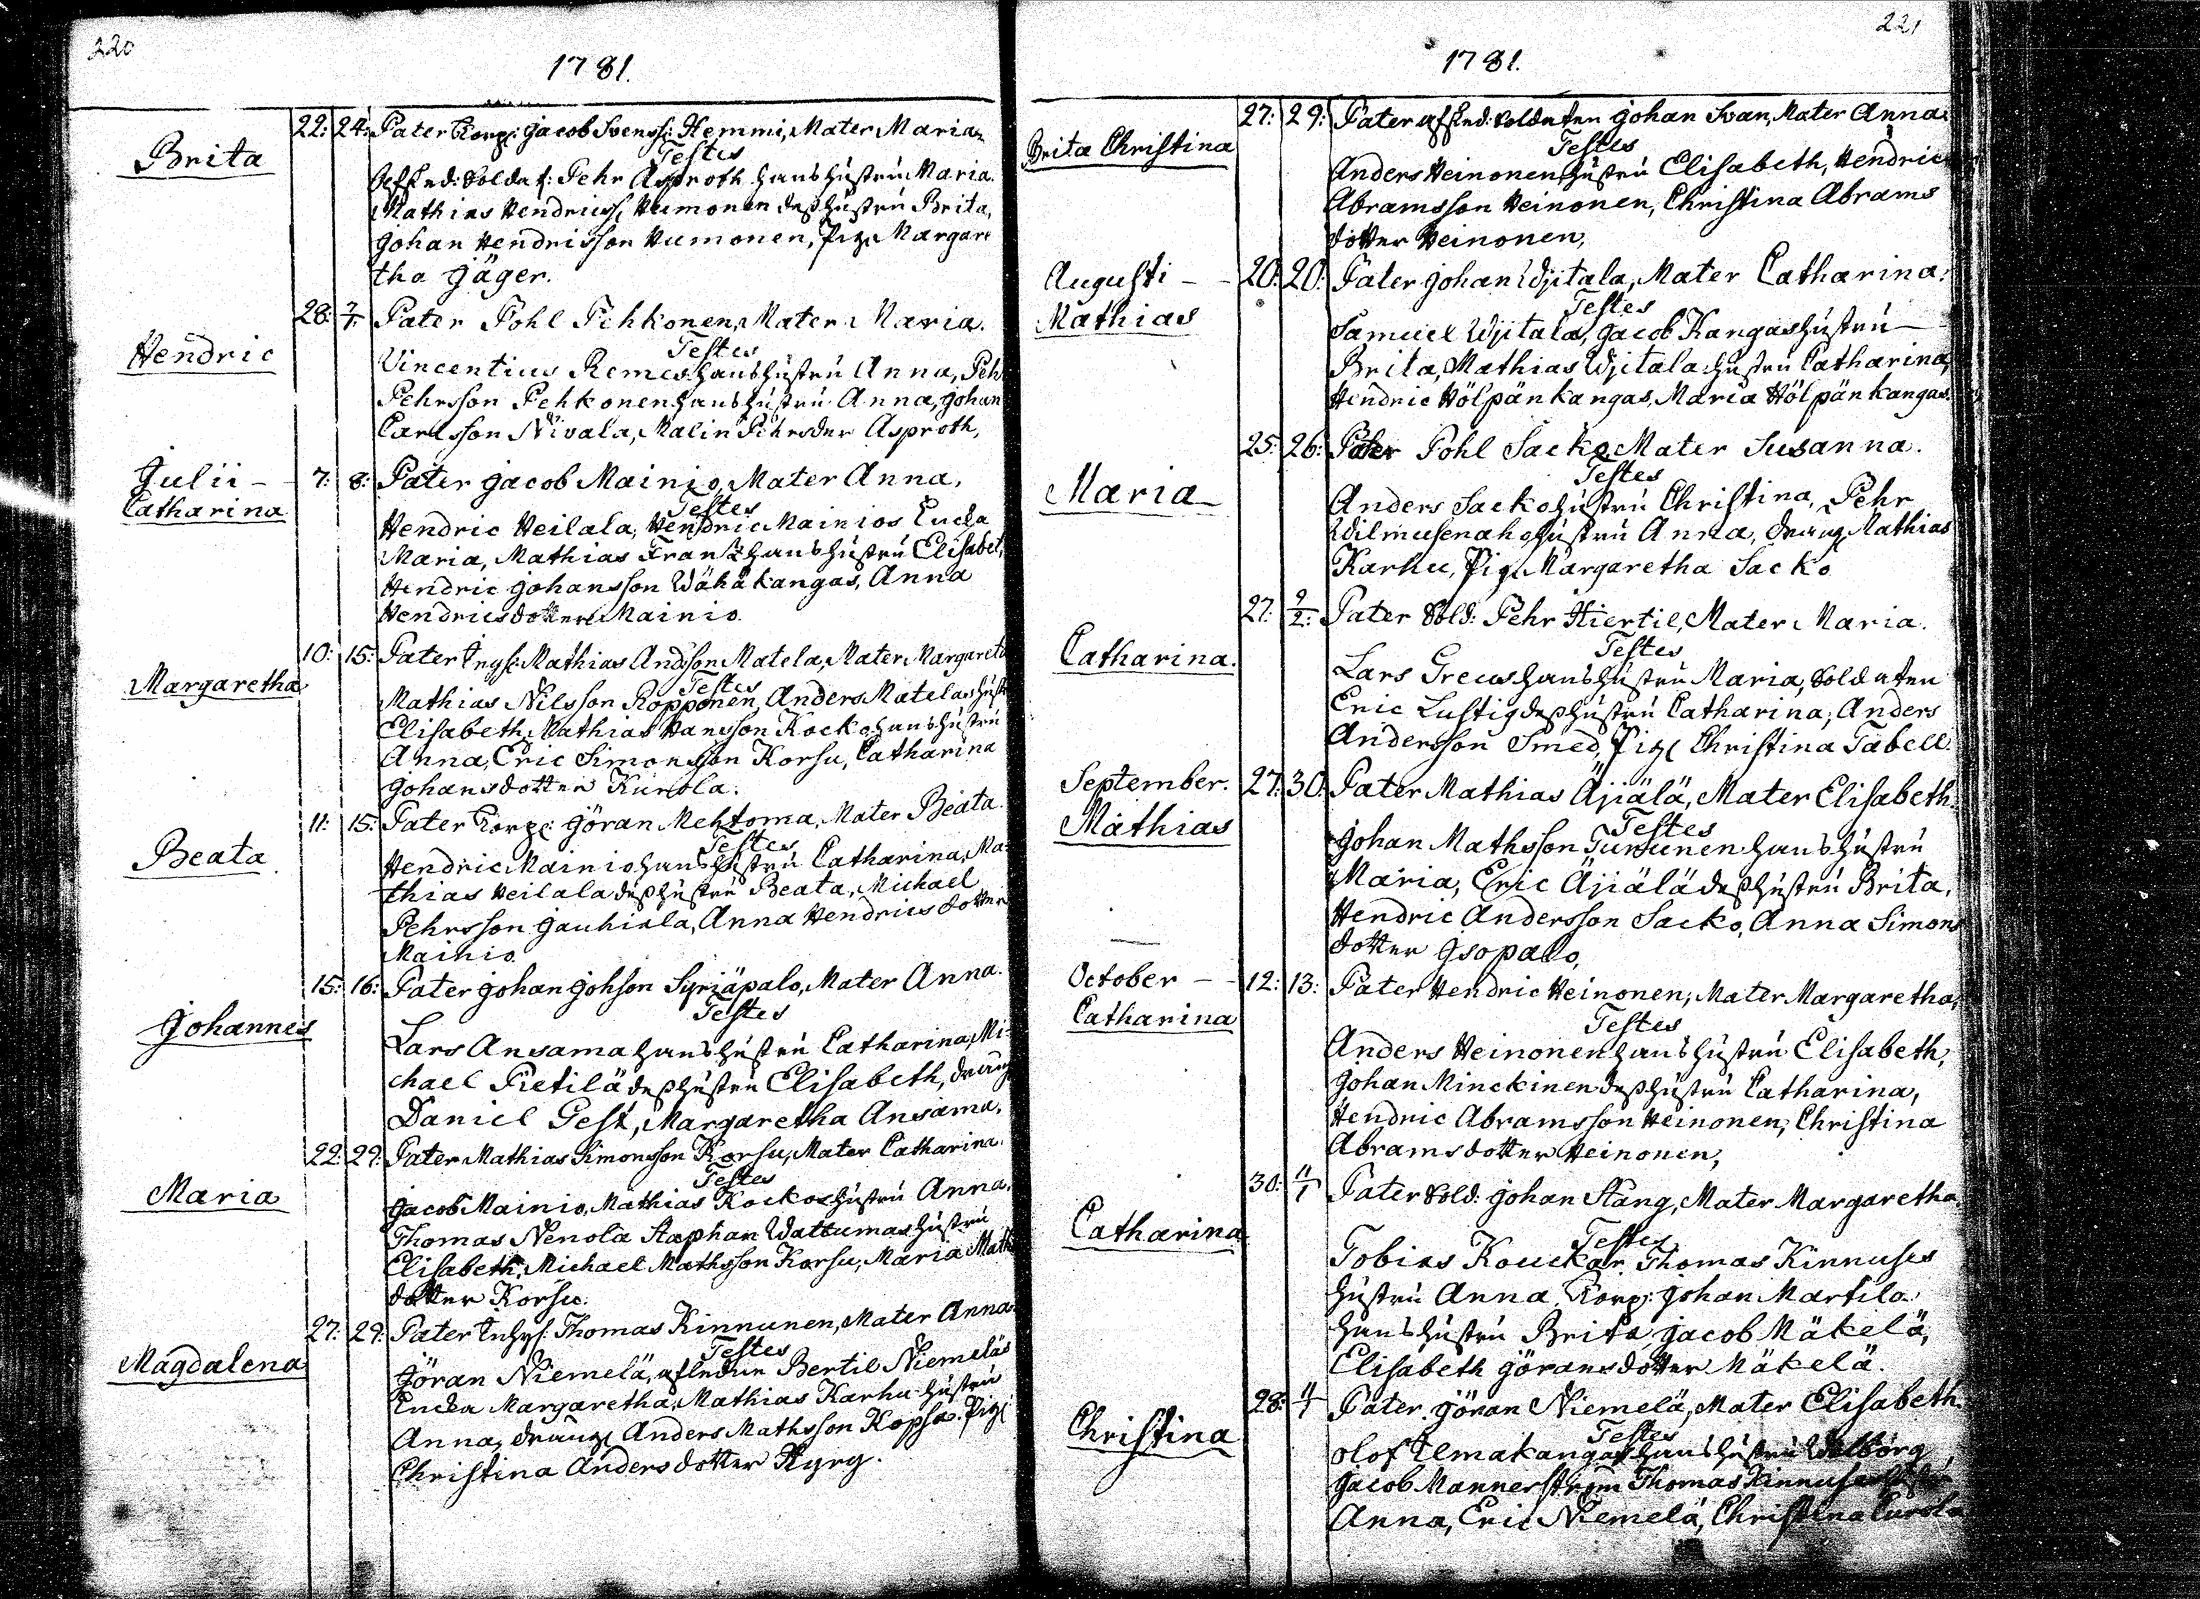 220
1781.
22: 24: Pater Korp: Jacob Svenss: Hemmi, Mater Maria
Brita
Testes
Afsked: Soldat: Pehr Asproth hans hustru Maria.
Mathias Hendricss: Humonen dess hustru Brita,
Johan Hendricsson Humonen, Pig. Margare
tha Jäger.
28: 7/1. Pater Pohl Pehkonen, Mater Maria.
Hendric
Testes
Vincentius Remes hans hustru Anna, Pehr
Pehrsson Pehkonen hans hustru Anna, Johan
Carlsson Nivala, Malin Pehrsder Asproth,
Julii - 7: 8: Pater Jacob Mainio, Mater Anna,
Catharina
Testes
Hendric Heilala, Hendric Mainios Encka
Maria, Mathias Frantz hans hustru Elisabet,
Hendric Johansson Wähäkangas, Anna
Hendricsdotter Mainio.
10: 15: Pater Inhs: Mathias Andsson Matela, Mater Margareta
Margaretha
Testes
Mathias Nilsson Ropponen, Anders Matelas hustru
Elisabeth, Mathias Hansson Kocko hans hustru
Anna, Eric Simonsson Korsu, Catharina
Johansdotter Kurola.
11: 15: Pater Korp: Göran Mehtoma, Mater Beata.
Beata
Testes
Hendric Mainio hans hustru Catharina, Ma-
thias Heilala dess hustru Beata, Michael
Pehrsson Jauhiala, Anna Hendricsdotter
Mainio.
15: 16: Pater Johan Johsson Syriäpalo, Mater Anna.
Johannes
Testes
Lars Ansama hans hustru Catharina, Mi-
chael Pietilä dess hustru Elisabeth, dräng
Daniel Gest, Margaretha Ansama.
22: 29: Pater Mathias Simonsson Korsu, Mater Catharina.
Maria
Testes
Jacob Mainio, Mathias Kockos hustru Anna.
Thomas Nenola Staphan Wattumas hustru
Elisabeth, Michael Mathsson Korsu, Maria Maths
dotter Korsu.
27: 29: Pater Inhys: Thomas Kinnunen, Mater Anna.
Magdalena
Testes
Göran Niemelä, aflednr Bertil Niemeläs
Encka Margaretha, Mathias Karhu hustru
Anna, dräng Anders Mathsson Kopsa. Pig.
Christina Andersdotter Kyrg.
221
1781.
27: 29: Pater afsked: Soldaten Johan Svan, Mater Anna.
Brita Christina
Testes
Anders Heinonen hustru Elisabeth, Hendric
Abramsson Heinonen, Christina Abrams
dotter Heinonen,
Augusti - - 20: 20: Pater Johan Wjitala, Mater Catharina.
Mathias
Testes
Samuel Wjitala, Jacob Kangas hustru
Brita, Mathias Wjitala hustru Catharina,
Hendric Hölpänkangas, Maria Hölpänkangas.
25: 26: Pater Pohl Sacko Mater Susanna.
Maria
Testes
Anders Sacko hustru Christina, Pehr
Wilmusenaho hustru Anna, dräng Mathias
Karhu, Pig. Margaretha Sacko
27: 9/2: Pater Sold: Pehr Hiertil, Mater Maria.
Catharina.
Testes
Lars Grews hans hustru Maria, Soldaten
Eric Lustig dess hustru Catharina, Anders
Andersson Smed, Pig. Christina Tabell.
September. 27: 30. Pater Mathias Äjiälä, Mater Elisabeth.
Mathias
Testes
Johan Mathsson Turunen hans hustru
Maria, Eric Äjiälä dess hustru Brita,
Hendric Andersson Sacko, Anna Simons
dotter Isopalo,
October - - 12: 13: Pater Hendric Heinonen, Mater Margaretha,
Catharina
Testes
Anders Heinonen hans hustru Elisabeth,
Johan Minckinen dess hustru Catharina,
Hendric Abramsson Heinonen, Christina
Abramsdotter Heinonen,
30: 11/1 Pater Sold: Johan Stång, Mater Margaretha.
Catharina
Testes
Tobias Kouckar, Thomas Kinnuses
hustru Anna, Korp: Johan Martila
hans hustru Brita, Jacob Mäkelä,
Elisabeth Göransdotter Mäkelä.
28: 11/1 Pater. Göran Niemelä, Mater Elisabeth.
Christina
Testes
Olof Ilmakangas hans hustru Walborg,
Jacob Mannerström Thomas Kinnuses hustru
Anna, Eric Niemelä, Christina Curola